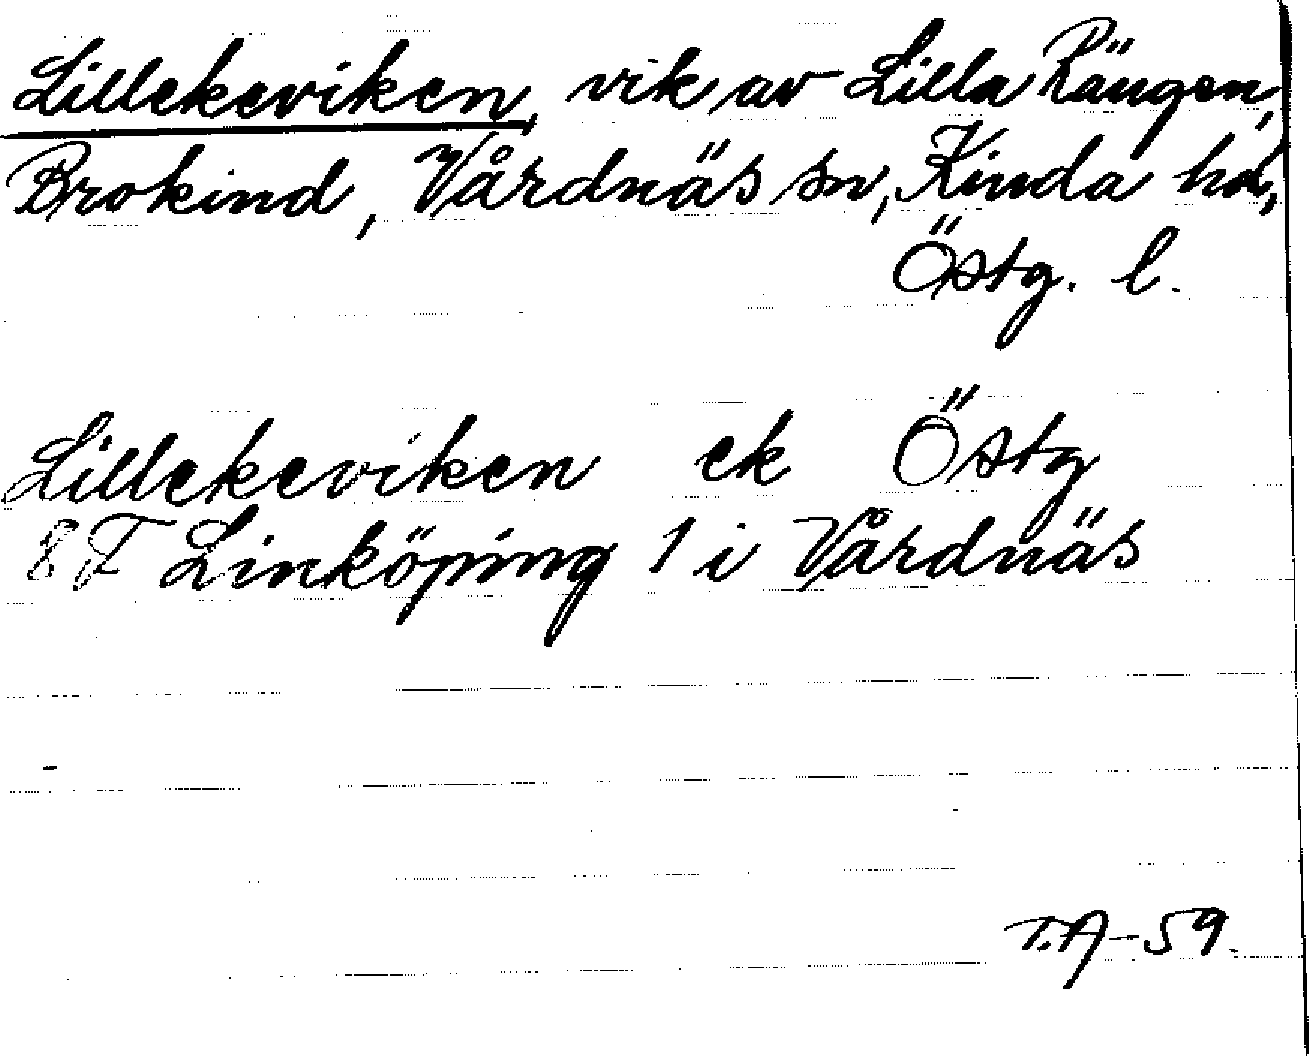 Lillekeviken, vik av Lilla Rängen,
Brokind, Vårdnäs sn, Kinda hd,
Östg. l.
Lillekeviken ek Östg
8 F Linköping 1 i Vårdnäs
T.A-59.